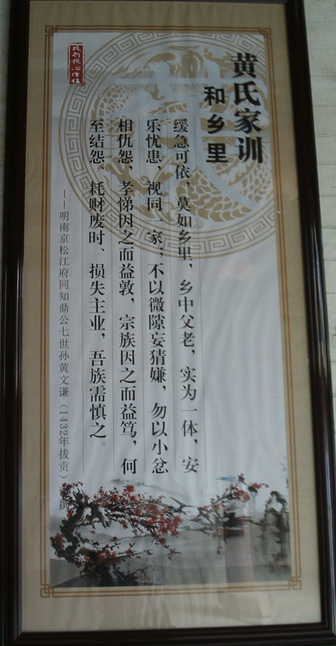 黄氏家训
和乡里
缓急可依，莫如乡里，乡中父老，实为一体，安
乐忧患，视同一家；不以微隙妄猜嫌，勿以小忿
相仇怨，孝悌因之而益敦，宗族因之而益笃，何
至结怨、耗财废时、损失主业，吾族需慎之。
——明南京松江府同知鼎公七世孙黄文谦（1432年拔贡）撰